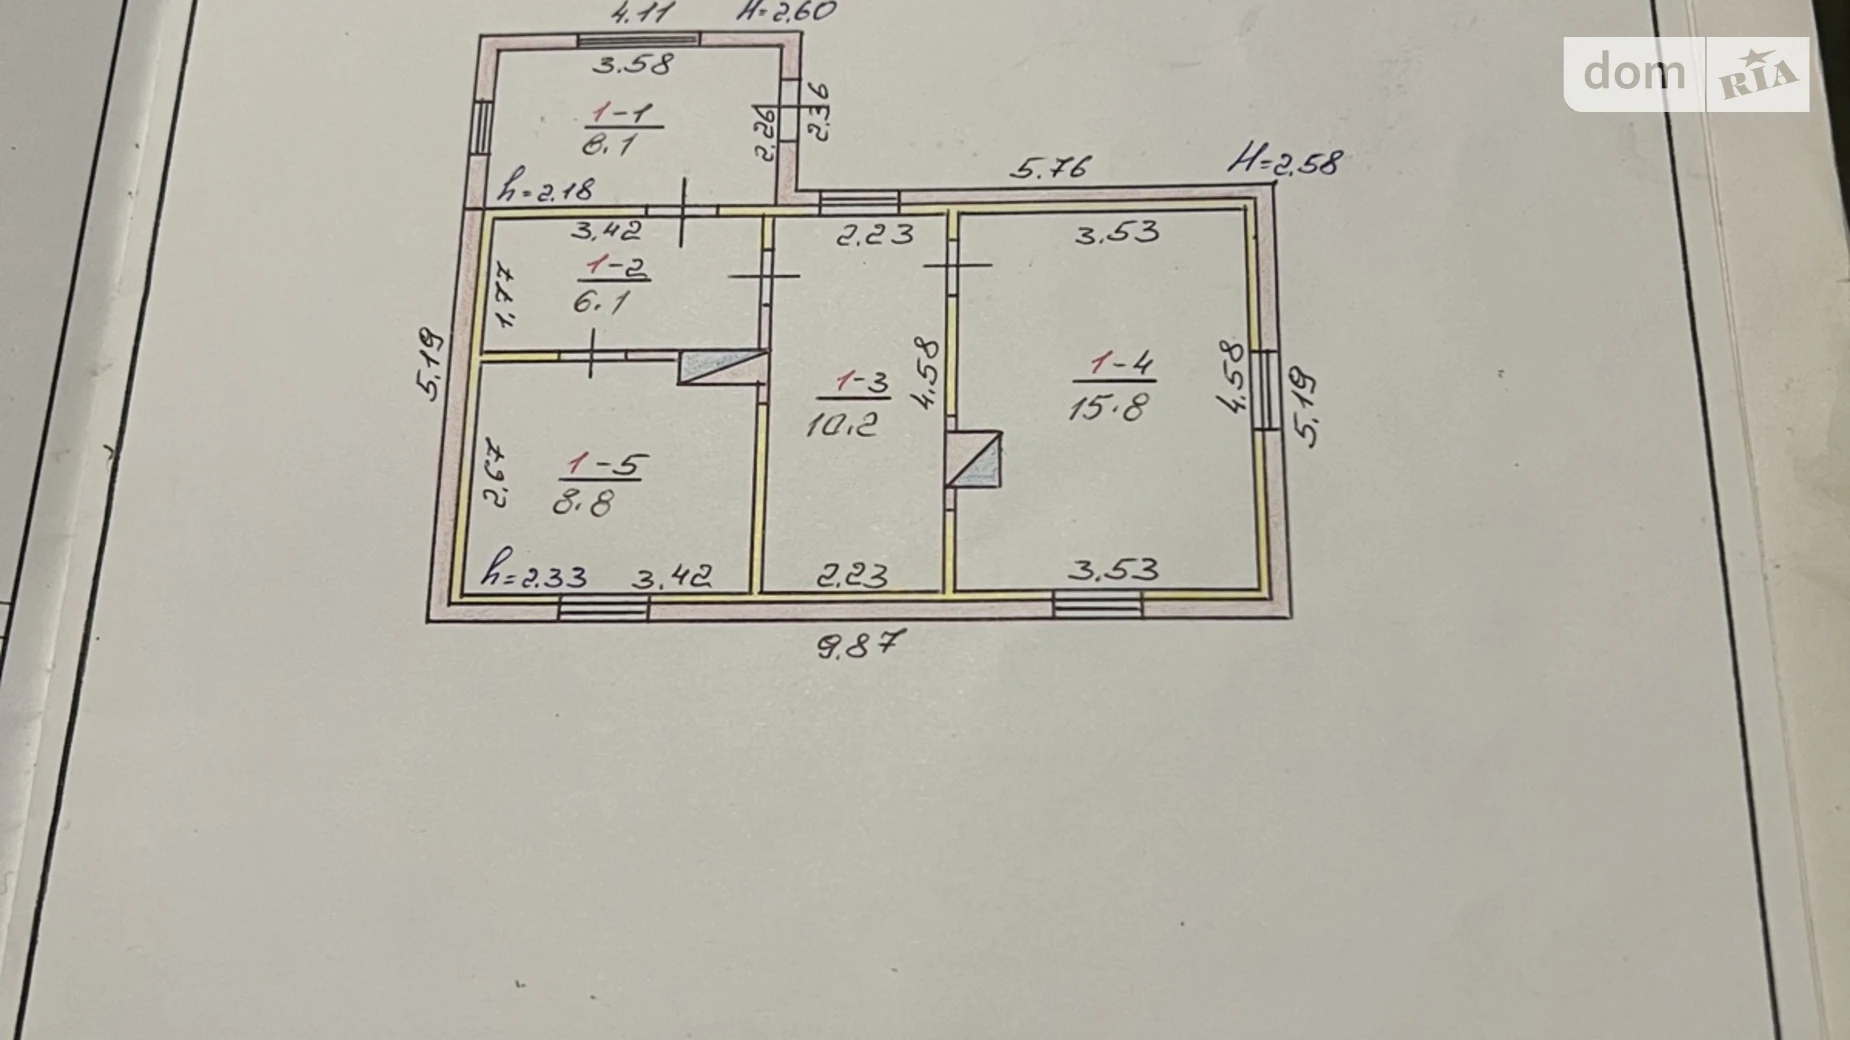 4.11 H=2.60
dom RIA
3.58
1-1
8.1
2.26
2.36
h=2.18
5.76
H=2.58
3.42
2.23
3.53
1-2
6.1
1.77
5.19
4.58
1-3
10.2
1-4
15.8
4.58
5.19
2.67
1-5
8.8
h=2.33 3.42
2.23
3.53
9.87